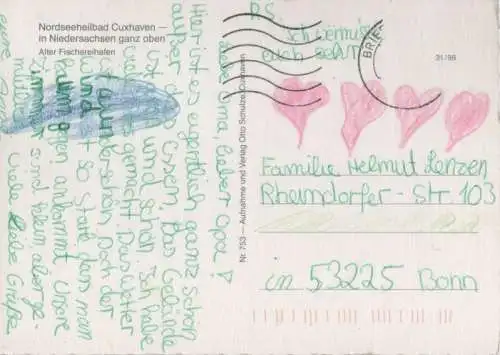 Nordseeheilbad Cuxhaven —
in Niedersachsen ganz oben
Alter Fischereihafen
Liebe Oma, lieber Opa!
Hier ist es eigentlich ganz schön
außer das Essen. Das Gelände
ist
und schon
Ich habe
gemacht. Das Wetter
ist wunderschön. Doch der
Wind ist so stark dass man
kaum gegen ankommt. Unsere
Zimmer sind klein aber ge-
mütlich. Viele liebe Grüße
eure
P.S.
Ich vermiss
euch sehr
BRIEF
31/98
Nr. 753 — Aufnahme und Verlag Otto Schulze, Cuxhaven
Familie Helmut Lenzen
Rheindorfer-Str. 103
in 53225 Bonn